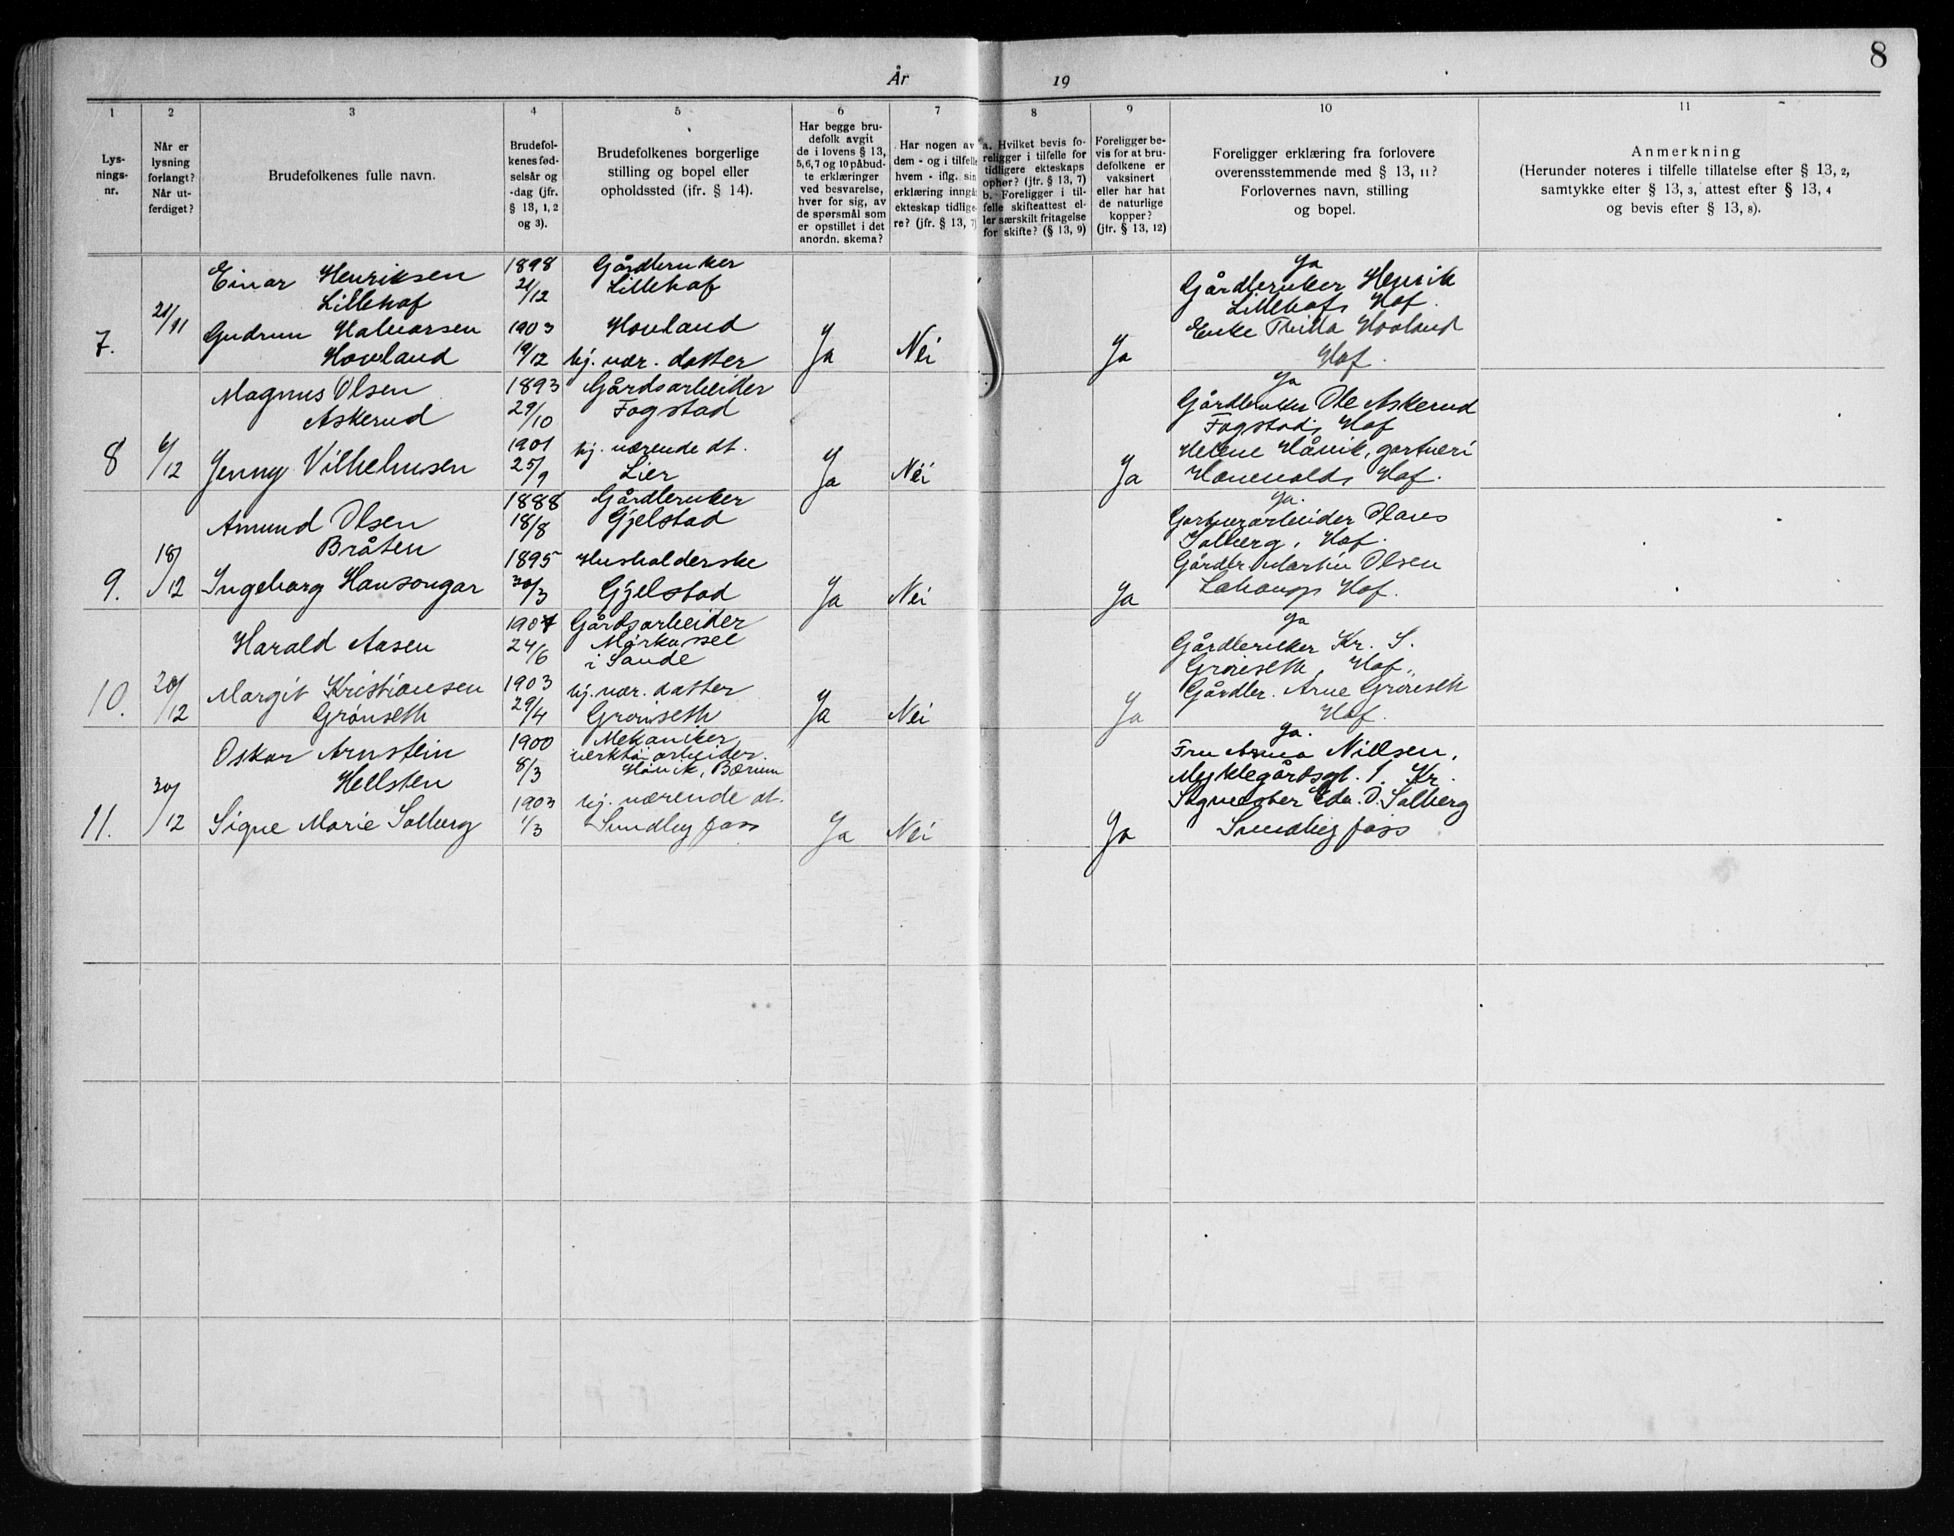 8
År 19
1
Lys-
nings-
nr.
2
Når er
lysning
forlangt?
Når ut-
ferdiget?
3
Brudefolkenes fulle navn.
4
Brudefol-
kenes fød-
selsår og
-dag (jfr.
§ 13, 1, 2
og 3).
5
Brudefolkenes borgerlige
stilling og bopel eller
opholdssted (ifr. § 14).
6
Har begge bru-
defolk avgit
de i lovens § 13,
5, 6, 7 og 10 påbud-
te erklæringer
ved besvarelse,
hver for sig, av
de spørsmål som
er opstillet i det
anordn. skema?
7
Har nogen av
dem - og i tilfelle
hvem - iflg. sin
erklæring inngåt
ekteskap tidlige-
re? (jfr. § 13, 7)
8
a. Hvilket bevis fo-
religger i tilfelle for
tidligere ekteskaps
ophør? (jfr. § 13, 7)
b. Foreligger i til-
felle skifteattest el-
ler særskilt fritagelse
for skifte? (§ 13, 9)
9
Foreligger be-
vis for at bru-
defolkene er
vaksinert
eller har hat
de naturlige
kopper?
(jfr. § 13, 12)
10
Foreligger erklæring fra forlovere
overensstemmende med § 13, 11?
Forlovernes navn, stilling
og bopel.
11
Anmerkning
(Herunder noteres i tilfelle tillatelse efter § 13, 2,
samtykke efter § 13, 3, attest efter § 13, 4
og bevis efter § 13, 8).
7.
21/11
Einar Henriksen
Lillehof
Gudrun Halvorsen
Hovland
1898
21/12
1903
19/12
Gårdbruker
Lillehof
Hovland
hj. vær. datter
Ja
Nei
Ja
Ja
Gårdbruker Henrik
Lillehof, Hof.
Enke Thilla Hovland
Hof.
8
6/12
Magnus Olsen
Askerud
Jenny Vilhelmsen
1893
29/10
1901
25/9
Gårdsarbeider
Fogstad
hj. værende dt.
Lier
Ja
Nei
Ja
Ja
Gårdbruker Ole Askerud
Fogstad, Hof
Helene Håvik, gartneri
Hof.
9.
18/12
Amund Olsen
Bråten
Ingeborg Hansongar
1888
18/8
1895
30/3
Gårdbruker
Gjelstad
Husholderske
Gjelstad
Ja
Nei
Ja
Ja.
Gartnerarbeider Hans
Solberg, Hof.
Gårdbr. Martin Olsen
Hof.
10.
20/12
Harald Aasen
Margit Kristiansen
Grønseth
1904
24/6
1903
29/4
Gårdsarbeider
Markussee
i Sande
hj. vær. datter
Grønseth
Ja
Nei
Ja
Ja
Gårdbruker Kr. S.
Grønseth, Hof,
Gårdbr. Arne Grønseth
Hof.
11.
30/12
Oskar Arnstein
Hellsten
Signe Marie Solberg
1900
8/3
1903
1/3
Mekaniker
verktøiarbeider.
Høvik, Bærum
hj. værende dt.
Sundbyfoss
Ja
Nei
Ja
Ja.
Fru Anna Nielsen,
Myklegårdsgt. 1. Kr.
Edv. O. Solberg
Sundbyfoss